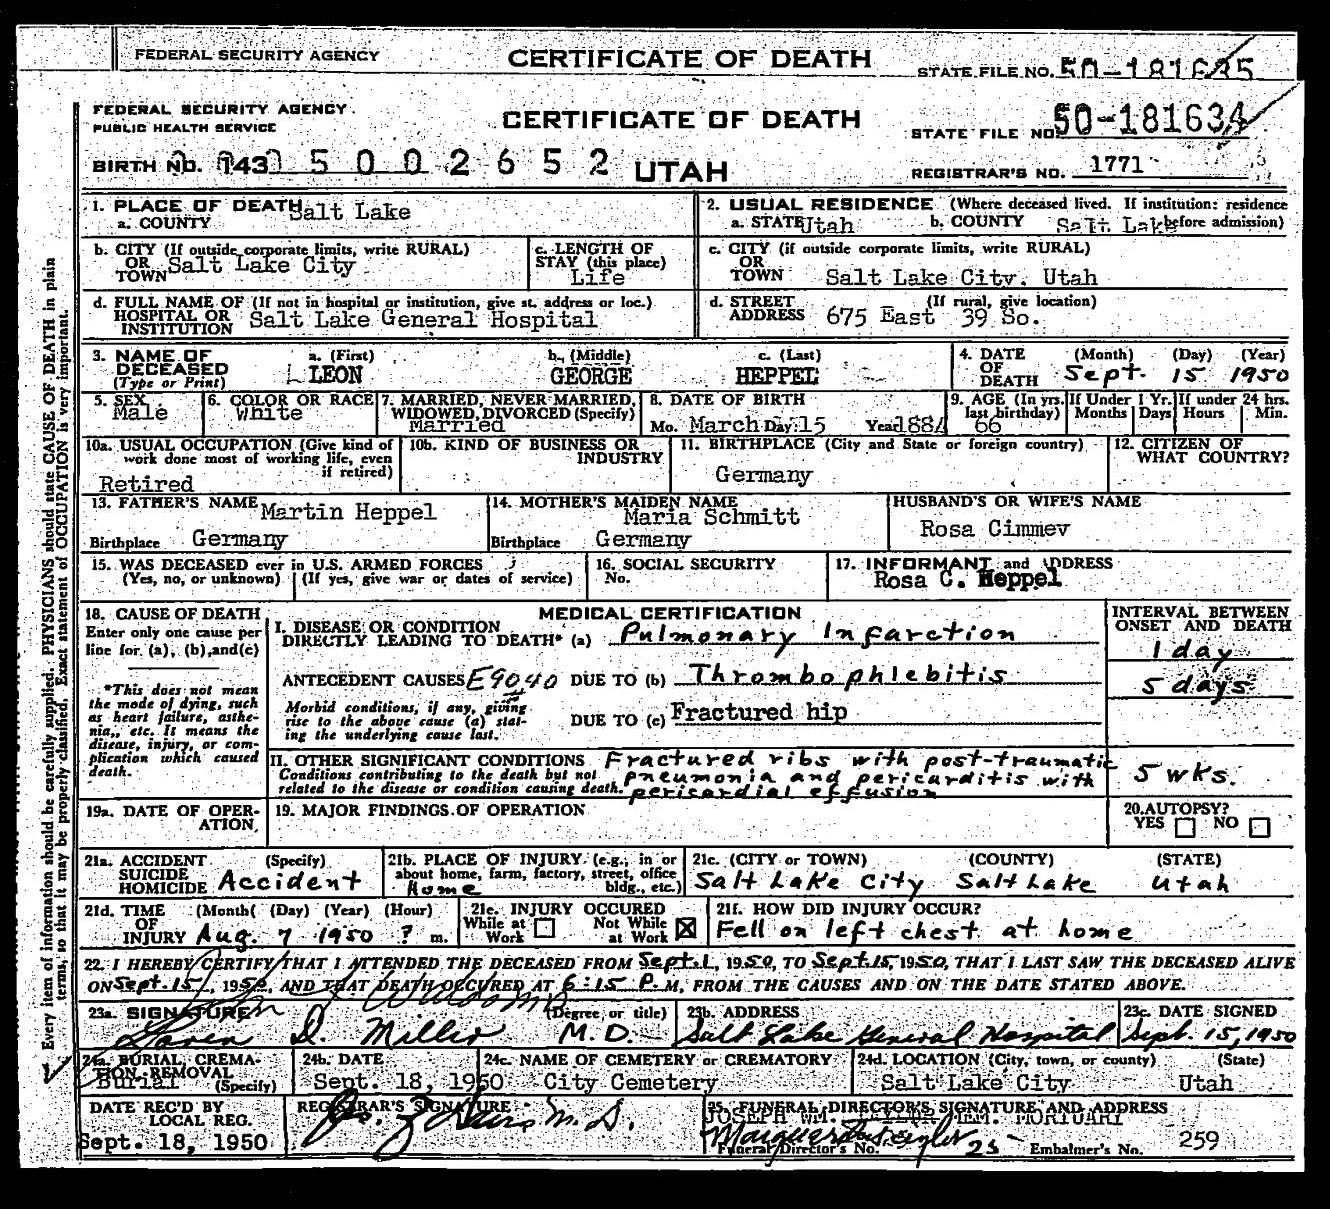 FEDERAL SECURITY AGENCY CERTIFICATE OF DEATH STATE FILE NO. 50-181635
FEDERAL SECURITY AGENCY
PUBLIC HEALTH SERVICE
CERTIFICATE OF DEATH
STATE FILE NO. 50-181634
BIRTH NO. 143 5 0 0 2 6 5 2 UTAH
REGISTRAR'S NO. 1771
Every item of information should be carefully supplied. PHYSICIANS should state CAUSE OF DEATH in plain
terms, so that it may be properly classified. Exact statement of OCCUPATION is very important.
1. PLACE OF DEATH
a. COUNTY Salt Lake
2. USUAL RESIDENCE (Where deceased lived. If institution: residence
a. STATE Utah b. COUNTY Salt Lake before admission)
b. CITY (If outside corporate limits, write RURAL)
OR
TOWN Salt Lake City
c. LENGTH OF
STAY (this place)
Life
c. CITY (if outside corporate limits, write RURAL)
OR
TOWN Salt Lake City. Utah
d. FULL NAME OF (If not in hospital or institution, give st. address or loc.)
HOSPITAL OR
INSTITUTION Salt Lake General Hospital
d. STREET (If rural, give location)
ADDRESS 675 East 39 So.
3. NAME OF
DECEASED
(Type or Print)
a. (First) b. (Middle) c. (Last)
LEON GEORGE HEPPEL
4. DATE (Month) (Day) (Year)
OF
DEATH Sept. 15 1950
5. SEX
Male
6. COLOR OR RACE
White
7. MARRIED, NEVER MARRIED,
WIDOWED, DIVORCED (Specify)
Married
8. DATE OF BIRTH
Mo. March Day 15 Year 1884
9. AGE (In yrs.
last birthday)
66
If Under 1 Yr.
Months Days
If under 24 hrs.
Hours Min.
10a. USUAL OCCUPATION (Give kind of
work done most of working life, even
if retired)
Retired
10b. KIND OF BUSINESS OR
INDUSTRY
11. BIRTHPLACE (City and State or foreign country)
Germany
12. CITIZEN OF
WHAT COUNTRY?
13. FATHER'S NAME Martin Heppel
Birthplace Germany
14. MOTHER'S MAIDEN NAME
Maria Schmitt
Birthplace Germany
HUSBAND'S OR WIFE'S NAME
Rosa Cimmev
15. WAS DECEASED ever in U.S. ARMED FORCES
(Yes, no, or unknown) (If yes, give war or dates of service)
16. SOCIAL SECURITY
No.
17. INFORMANT and ADDRESS
Rosa C. Heppel
18. CAUSE OF DEATH
Enter only one cause per
line for (a), (b), and (c)
*This does not mean
the mode of dying, such
as heart failure, asthe-
nia, etc. It means the
disease, injury, or com-
plication which caused
death.
MEDICAL CERTIFICATION
INTERVAL BETWEEN
ONSET AND DEATH
I. DISEASE OR CONDITION
DIRECTLY LEADING TO DEATH* (a) Pulmonary Infarction 1 day
ANTECEDENT CAUSES E9040 DUE TO (b) Thrombophlebitis 5 days
Morbid conditions, if any, giving
rise to the above cause (a) stat-
ing the underlying cause last.
DUE TO (c) Fractured hip
II. OTHER SIGNIFICANT CONDITIONS
Conditions contributing to the death but not
related to the disease or condition causing death.
Fractured ribs with post-traumatic
pneumonia and pericarditis with
pericardial effusion
5 wks.
19a. DATE OF OPER-
ATION
19. MAJOR FINDINGS OF OPERATION
20. AUTOPSY?
YES NO
21a. ACCIDENT (Specify)
SUICIDE
HOMICIDE Accident
21b. PLACE OF INJURY (e.g., in or
about home, farm, factory, street, office
bldg., etc.)
Home
21c. (CITY or TOWN) (COUNTY) (STATE)
Salt Lake City Salt Lake Utah
21d. TIME (Month) (Day) (Year) (Hour)
OF
INJURY Aug. 7 1950 ? m.
21e. INJURY OCCURED
While at Work Not While at Work
21f. HOW DID INJURY OCCUR?
Fell on left chest at home
22. I HEREBY CERTIFY THAT I ATTENDED THE DECEASED FROM Sept. 1, 1950, TO Sept. 15, 1950, THAT I LAST SAW THE DECEASED ALIVE
ON Sept. 15, 1950, AND THAT DEATH OCCURED AT 6:15 P. M, FROM THE CAUSES AND ON THE DATE STATED ABOVE.
23a. SIGNATURE (Degree or title)
D. Miller M.D.
23b. ADDRESS
Salt Lake General Hospital
23c. DATE SIGNED
Sept. 15, 1950
24a. BURIAL, CREMA-
TION, REMOVAL
Burial (Specify)
24b. DATE
Sept. 18, 1950
24c. NAME OF CEMETERY or CREMATORY
City Cemetery
24d. LOCATION (City, town, or county) (State)
Salt Lake City Utah
DATE REC'D BY
LOCAL REG.
Sept. 18, 1950
REGISTRAR'S SIGNATURE
M.D.
25. FUNERAL DIRECTOR'S SIGNATURE AND ADDRESS
JOSEPH WM. TAYLOR MEM. MORTUARY
Funeral Director's No. 25 Embalmer's No. 259